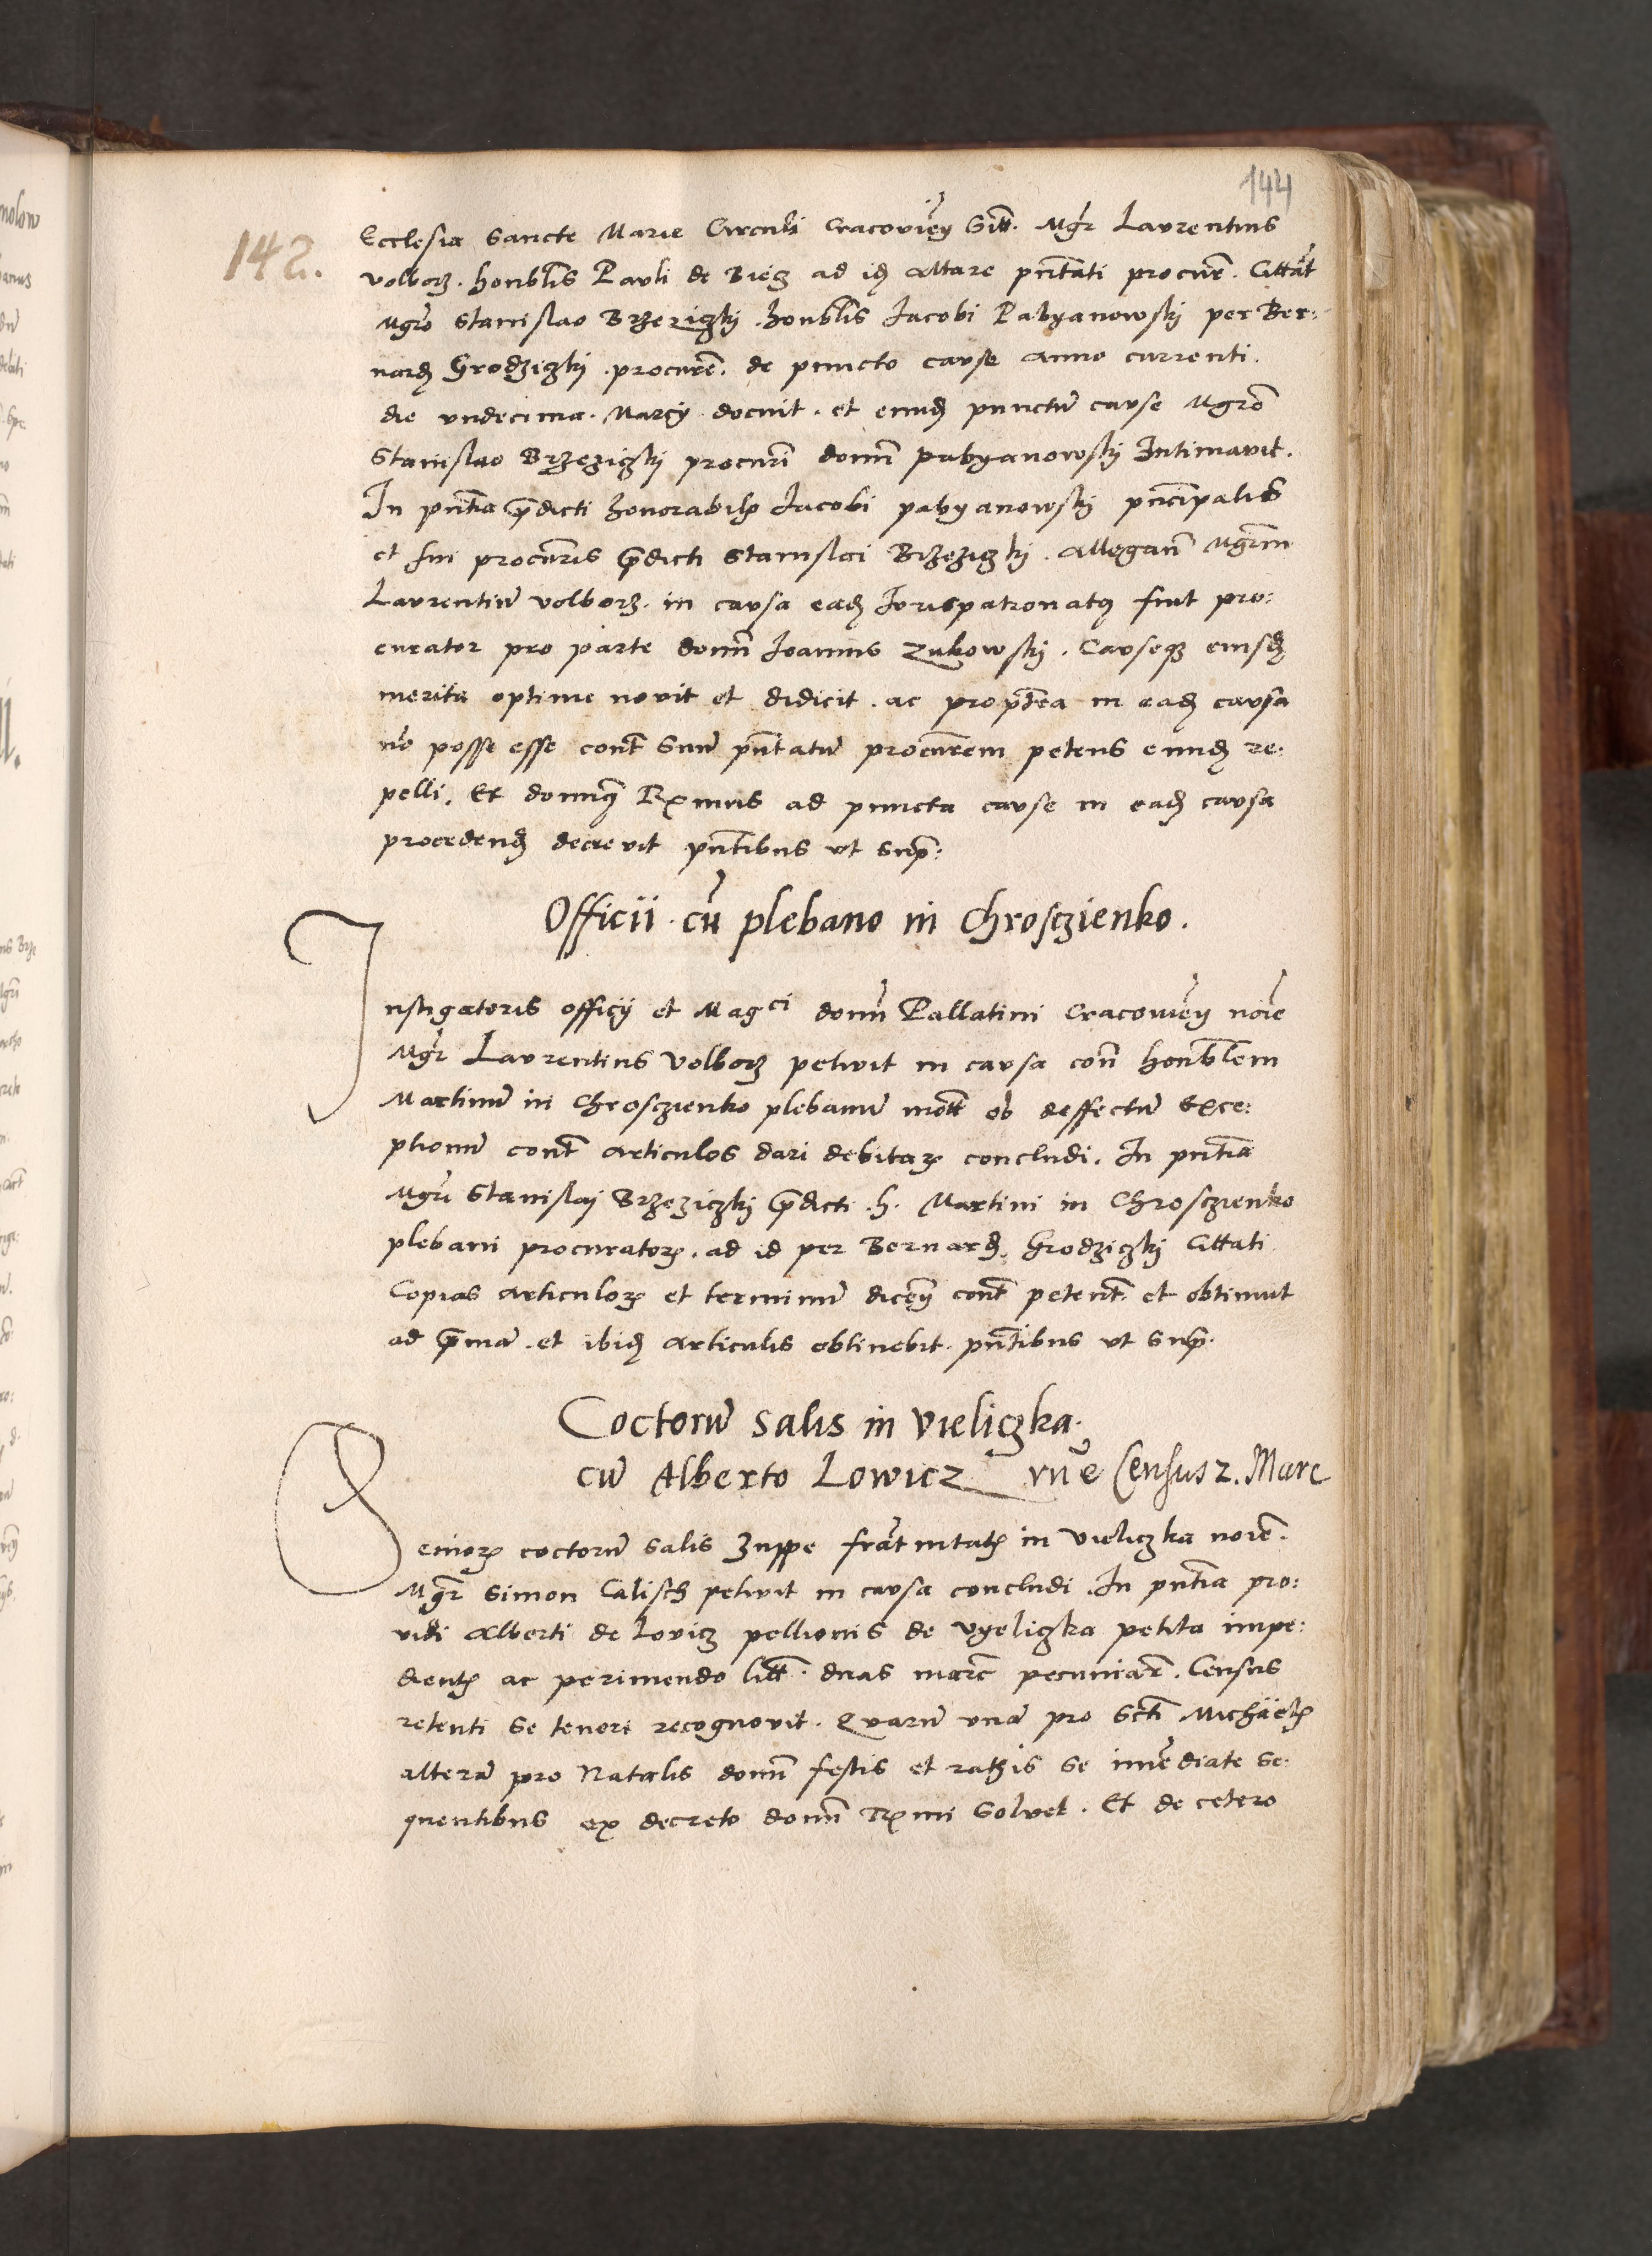 144
142.
Ecclesia Sancte Marie Circuli Cracovień Sitt. Mgr Laurentius
volborz. honblis Pauli de Biecz ad id altare pntati procure. Cittat
Mgro Stanislao Brzeziczkj. honblis Jacobi Pabyanowskj per Ber:
nard Grodziczkj. procure. de puncto cause anno currenti.
die undecima. Marcy docuit. et eund punctu cause Mgro
Stanislao Brzeziczkj procuri domi pabyanowskj Intimavit.
In pntia pdicti honorabilis Jacobi pabyanowskj pncipalis
et sui procuris pdicti Stanislai Brzeziczkj. Allegan Mgrm
Laurentiu volborz. in causa ead Jurispatronatus fuit pro:
curator pro parte domi Joannis Zukowskj. Causeq eiusd
merita optime novit et didicit. ac proptea in ead causa
no posse esse cont suu pntatu procurem petens eund re:
pelli. Et domq Rmus ad puncta cause in ead causa
procedend decrevit pntibus ut sup:
Officii. cu plebano in Chrosczienko.
Instigatoris officy et Magci domi Pallatini Cracovien noie
Mgr Laurentius Volborz petivit in causa con honblem
Martinu in Chrosczienko plebanu mott ob deffectu Exce:
ptionu cont articulos dari debitar concludi. In pntia
Mgri Stanislaj Brzeziczkj pdicti. h. Martini in Chrosczienko
plebani procurator. ad id per Bernard. Grodziczkj Cittati
Copias articulor et terminu dicen cont petent. et obtinuit
ad pma. et ibid articulis obtinebit. pntibus ut sup.
Coctoru salis in Vieliczka.
cu Alberto Lowicz rne Census 2. Marc
Senior coctoru salis Zuppe fratnitatis in Vieliczka noie.
Mgr Simon Calisch petivit in causa concludi. In pntia pro:
vidi Alberti de Lovicz pellionis de vyeliczka petita impe:
dientis ac perimendo litt. duas marc pecuniar. Census
retenti se teneri recognovit. Quaru una pro Scti Michaelis
altera pro Natalis domi festis et ratis se imediate se:
quentibus ex decreto domi Rmi solvet. Et de cetero